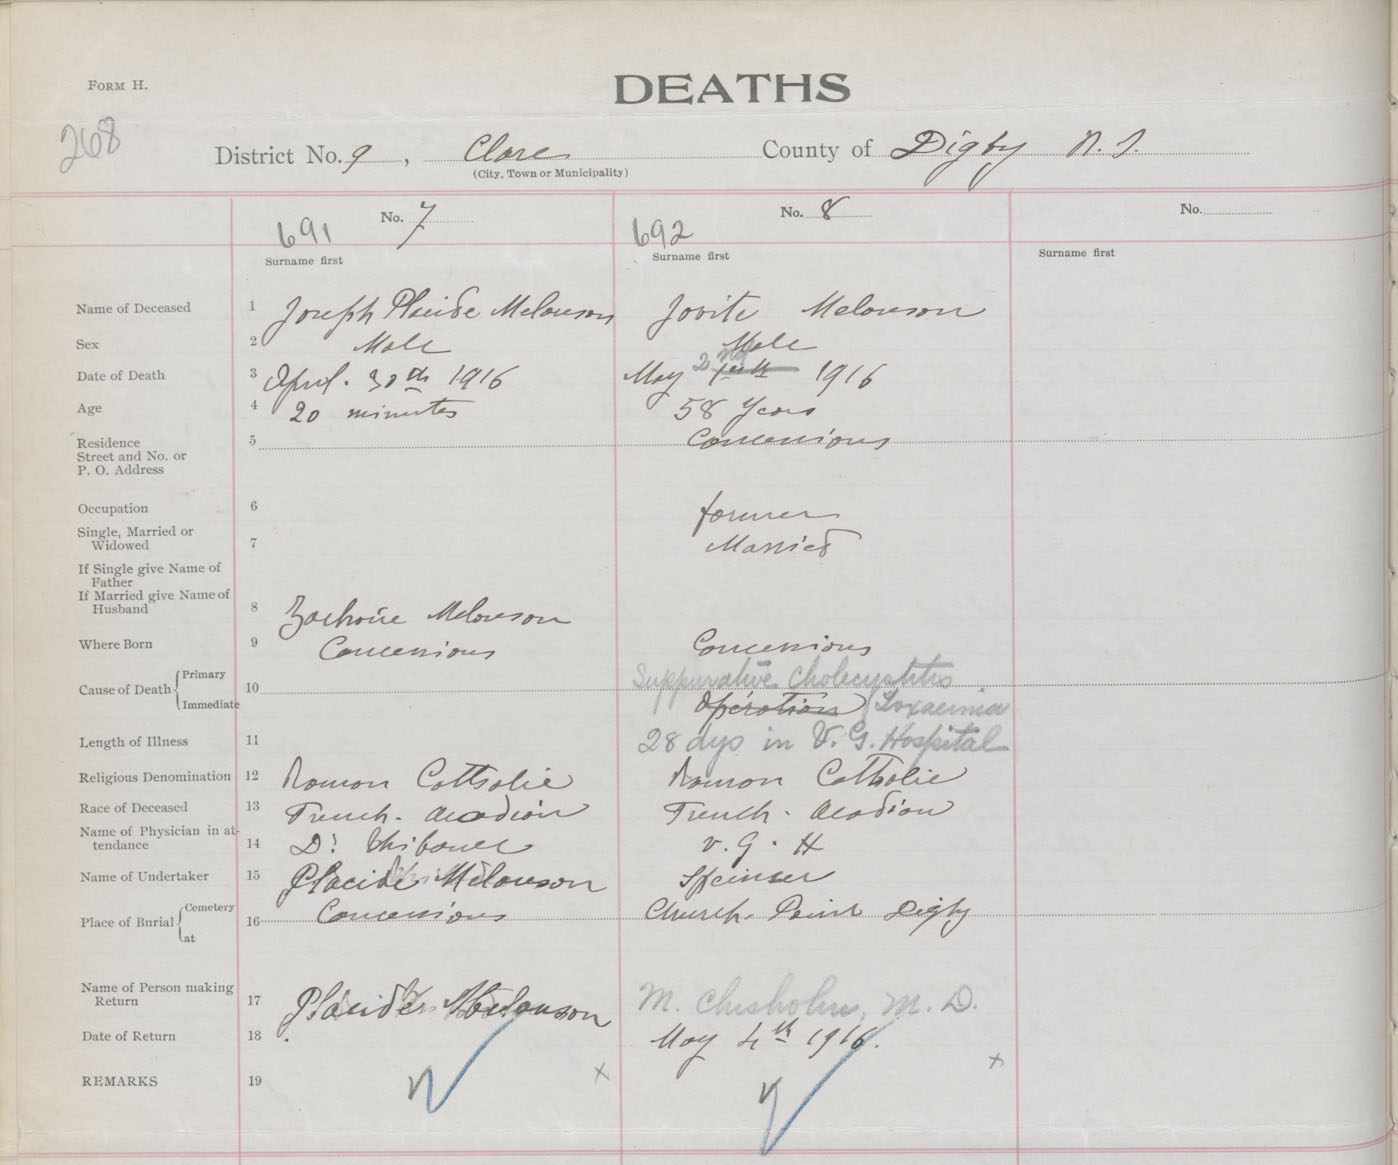 FORM H.
DEATHS
268
District No. 9, Clare County of Digby N. S.
(City, Town or Municipality)
No. 7 No. 8 No.
691 692
Surname first Surname first Surname first
Name of Deceased 1 Joseph Placide Melanson Jovite Melanson
Sex 2 Male Male
Date of Death 3 April. 30th 1916 May 2nd 1916
Age 4 20 minutes 58 Years
Residence 5 Concessions
Street and No. or
P. O. Address
Occupation 6 farmer
Single, Married or
Widowed 7 Married
If Single give Name of
Father
If Married give Name of
Husband 8 Zacharie Melanson
Where Born 9 Concessions Concessions
Cause of Death Primary 10 Suppurative Cholecystitis
Immediate Operation Toxaemia
Length of Illness 11 28 dys in V. G. Hospital
Religious Denomination 12 Roman Catholic Roman Catholic
Race of Deceased 13 French. Acadian French. Acadian
Name of Physician in at-
tendance 14 Dr Thibault V. G. H
Name of Undertaker 15 Placide Melanson Spencer
Place of Burial Cemetery 16 Concessions Church Point Digby
at
Name of Person making
Return 17 Placide Melanson M. Chisholm, M. D.
Date of Return 18 May 4th 1916.
REMARKS 19 x x